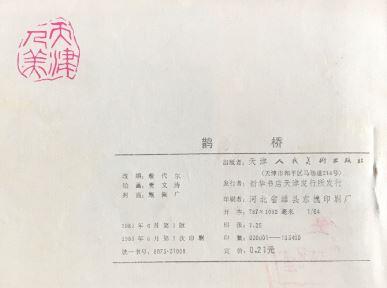 天津
人美
鹊 桥
出版者：天津人民美术出版社
(天津市和平区马场道 号)
改编：
绘画：
封面：
发行者：新华书店天津发行所发行
印刷者：河北省雄县东槐印刷厂
开本：787×1092毫米 1/64
印张：1.25
1983年6月第1版
1983年6月第1次印刷
印数：
统一书号：8073·21008
定价：0.21元